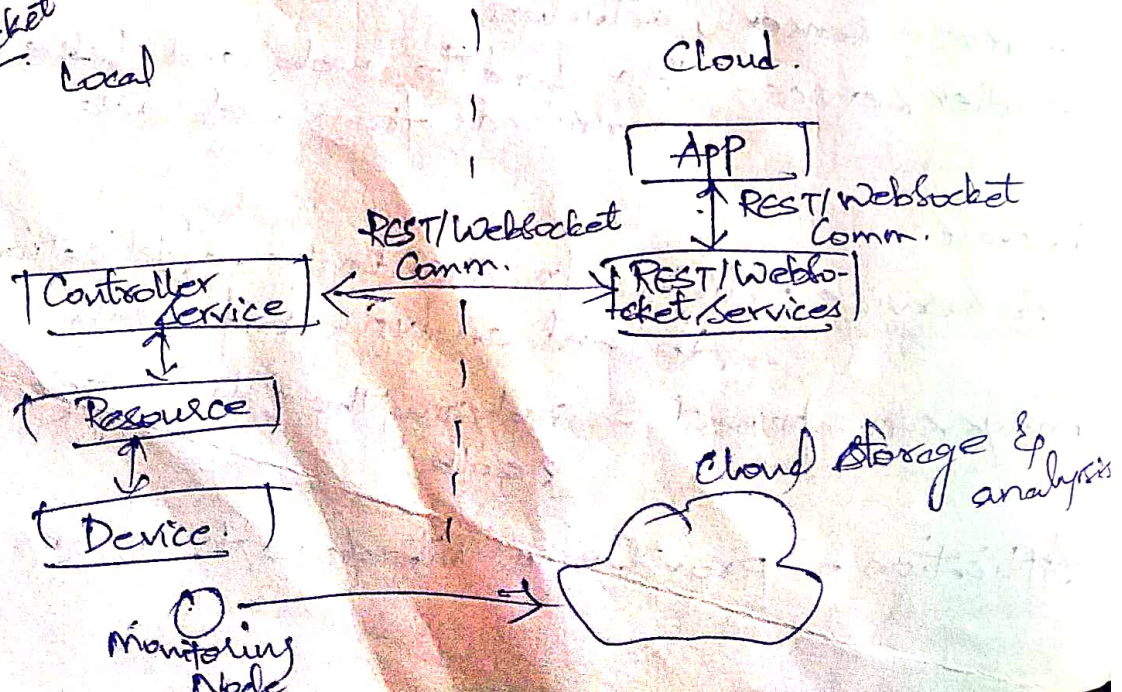 Local
Cloud.
App
REST/Websocket
Comm.
REST/Websocket
Comm.
Controller
Service
REST/Webso-
cket Services
Resource
Device.
Cloud storage &
analysis
Monitoring
Node